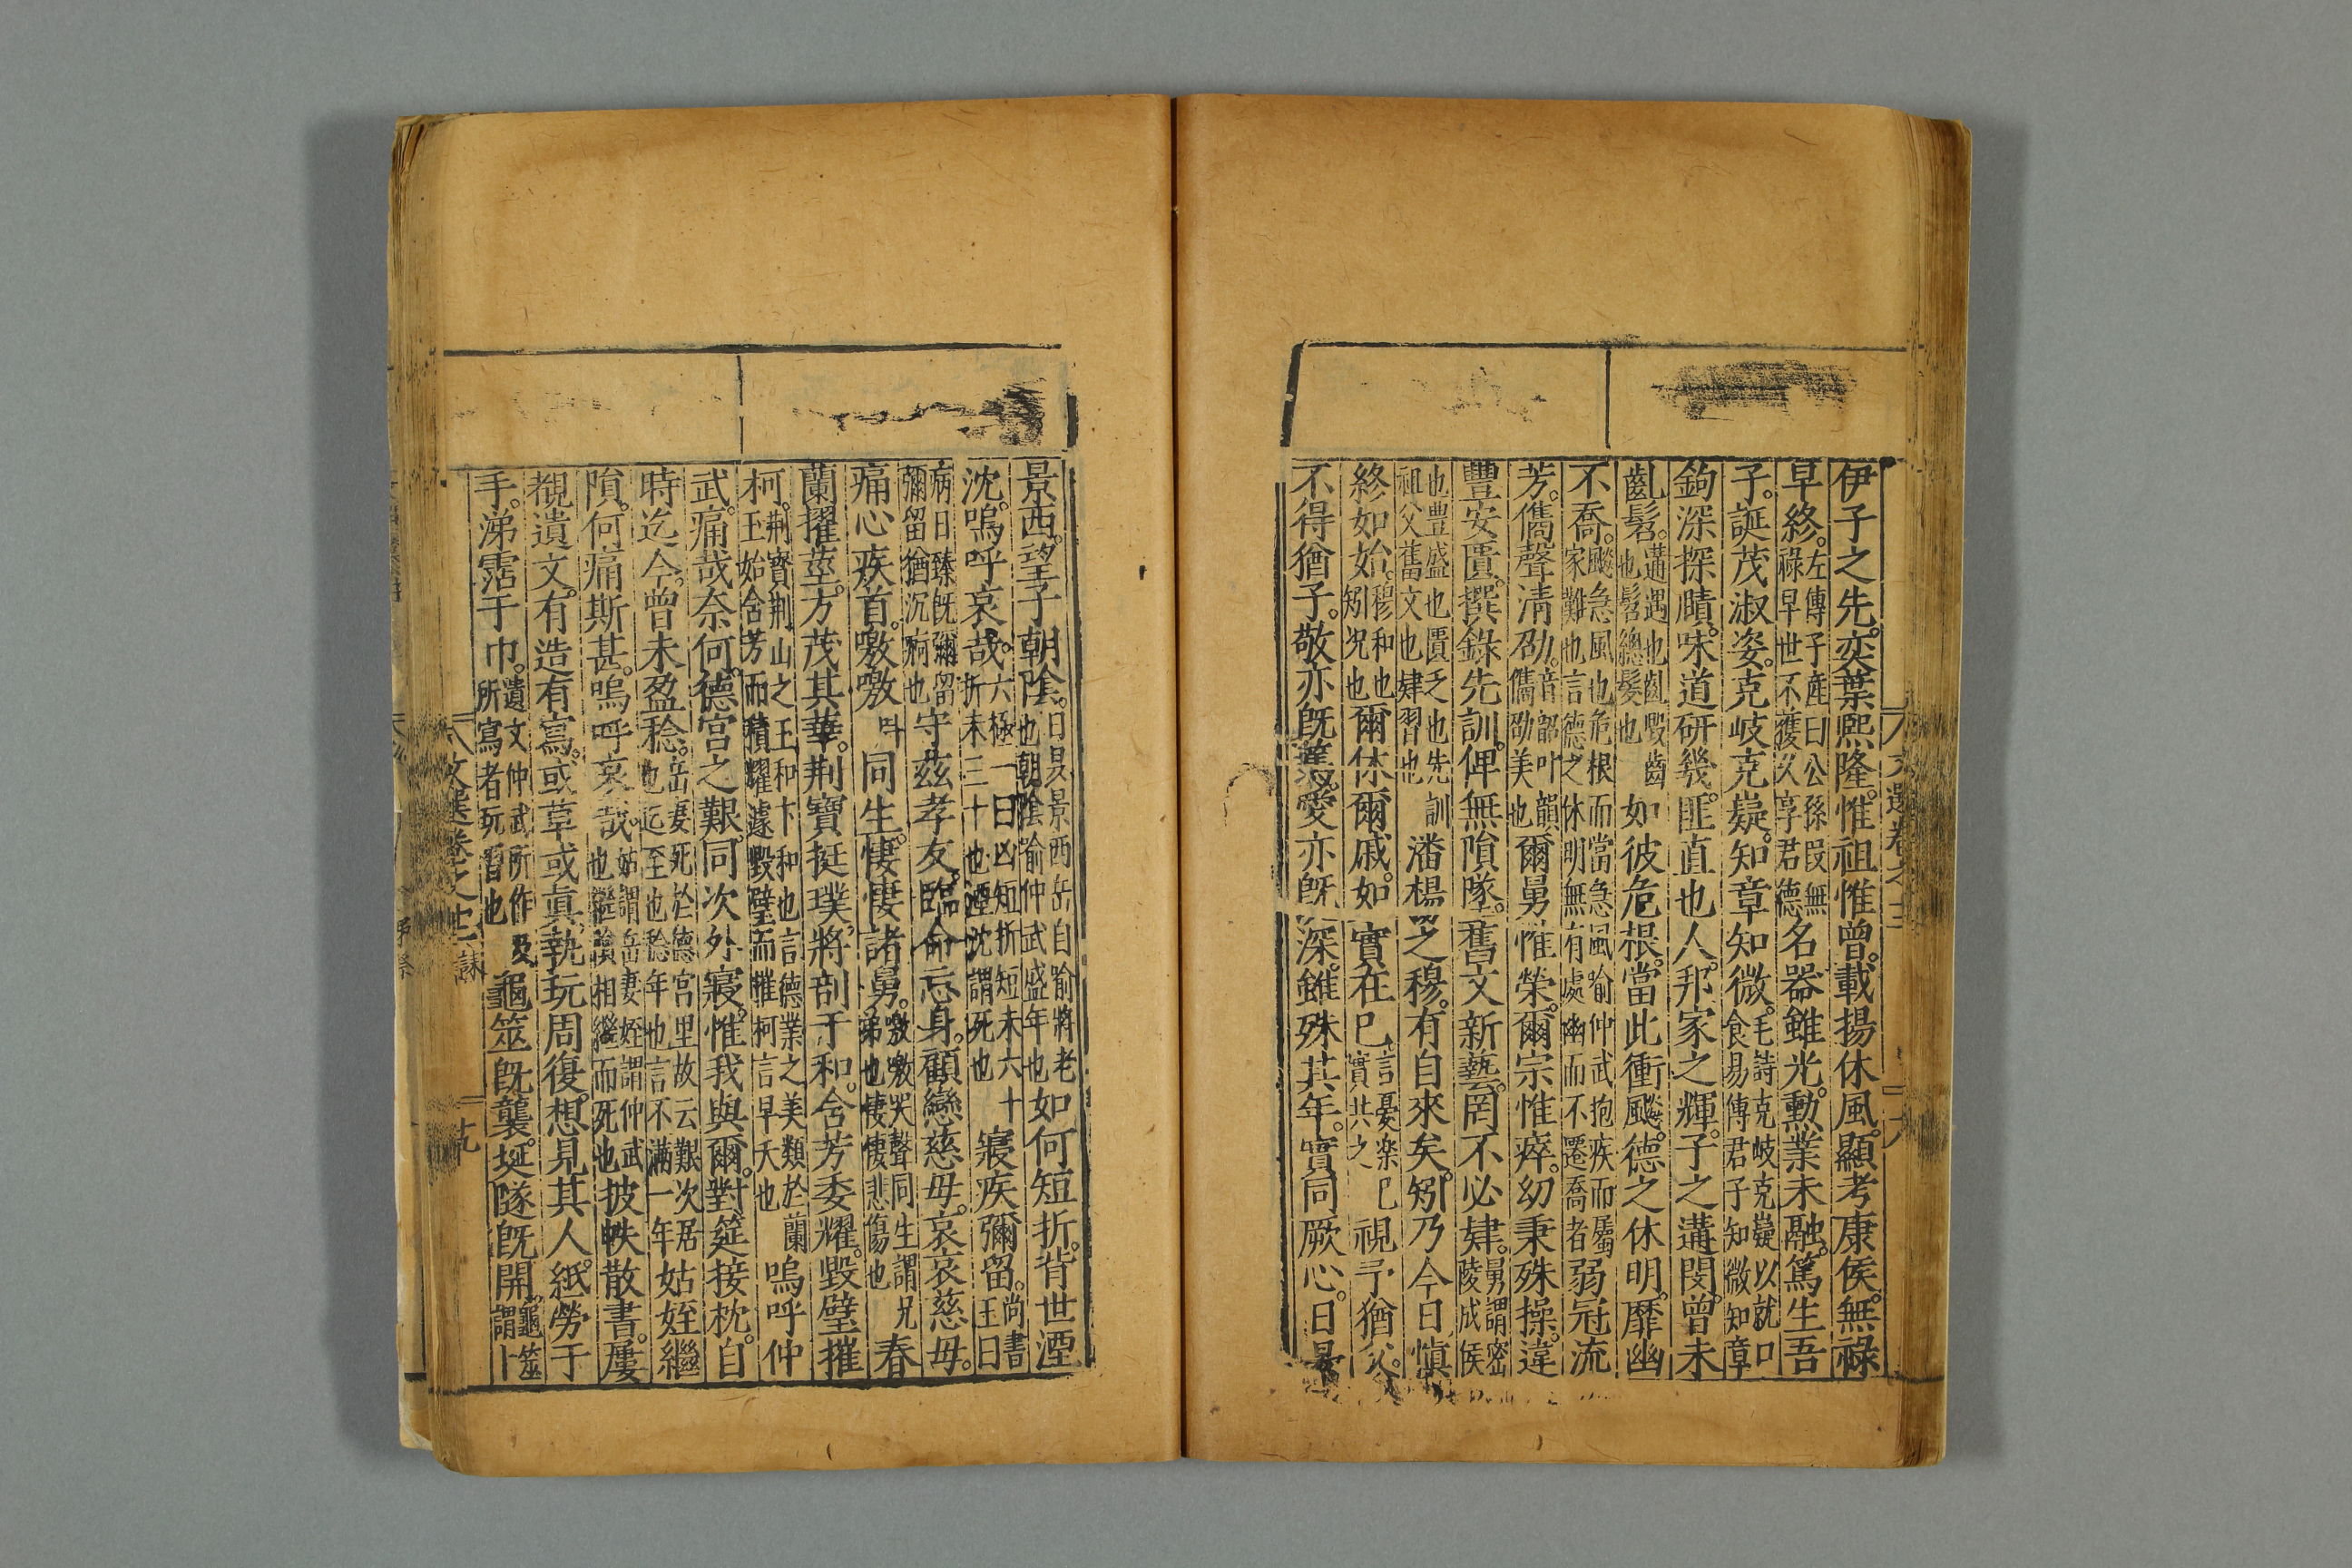 伊子之先。奕葉熙隆。惟祖惟曾。載揚休風。顯考康侯。無祿
早終。左傳子產曰公孫段無祿早世不獲久享君德名器雖光。勲業未融。篤生吾
子。誕茂淑姿。克岐克嶷。知章知微。毛詩克岐克嶷以就口食易傳君子知微知章
鉤深探賾。味道研幾。匪直也人。邦家之輝。子之遘閔。曾未
齓髫。遘遇也齓毀齒也髫總髮也如彼危根。當此衝飈。德之休明。靡幽
不喬。飈急風也危根而當急風喻仲武抱疾而屬家難也言德之休明無有處幽而不遷喬者弱冠流
芳。儁聲清劭。音韶叶韻儁劭美也爾舅惟榮。爾宗惟瘁。幼秉殊操。違
豐安匱。撰錄先訓。俾無隕墜。舊文新藝。罔不必肄。舅謂密陵成侯
也豊盛也匱乏也先訓祖父舊文也肄習也潘楊之穆。有自來矣。矧乃今日慎
終如始。穆和也矧况也爾休爾戚。如實在己。言憂楽己實共之視予猶父。
不得猶子。敬亦既篤。愛亦既深。雖殊其年。實同厥心。日昃
景西。望子朝陰。日昃景西岳自喻將老也朝陰喻仲武盛年也如何短折。背世湮
沈。嗚呼哀哉。六極一曰凶短折短未六十折未三十也湮沈謂死也寢疾彌留。尚書王曰
病日臻既彌留彌留猶沉痾也守茲孝友。臨命忘身。顧戀慈母。哀哀慈母。
痛心疾首。噭噭叫同生。悽悽諸舅。噭噭哭聲同生謂兄弟也悽悽悲傷也春
蘭擢莖。方茂其華。荆寶挺璞。將剖于和。含芳委耀。毀璧摧
柯。荆寳荆山之玉和卞和也言德業之美類於蘭玉始含芳而積耀遽毀璧而摧柯言早夭也嗚呼仲
武。痛哉奈何。德宮之艱。同次外寢。惟我與爾。對筵接枕。自
時迄今。曾未盈稔。岳妻死於德宮里故云艱次居也迄至也稔年也言不滿一年姑姪繼
隕。何痛斯甚。嗚呼哀哉。姑謂岳妻姪謂仲武也繼隕相繼而死也披帙散書。屢
覩遺文。有造有寫。或草或眞。執玩周復。想見其人。紙勞于
手。涕霑于巾。遺文仲武所作及所寫者玩習也龜筮既襲。埏隧既開。龜筮謂卜
文選卷之